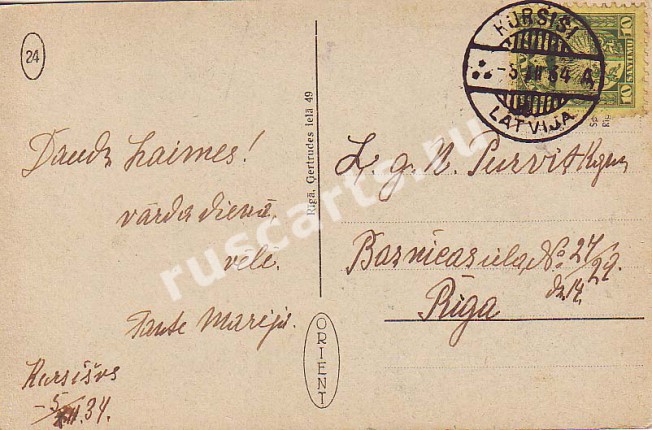 24
Daudz laimes!
vārda dienā,
vēlē
Tante Marija.
Kursišos
-5/XII.34.
Rīgā, Gertrudes ielā 49
ORIENT
KURSIŠI
-5.XII 34 A
LATVIJA
10 SANTIMU 10
L. g. N. Purvit kgm
Baznicas iela, No 27/29.
dz. 14.
Rīga
ruscarts.ru